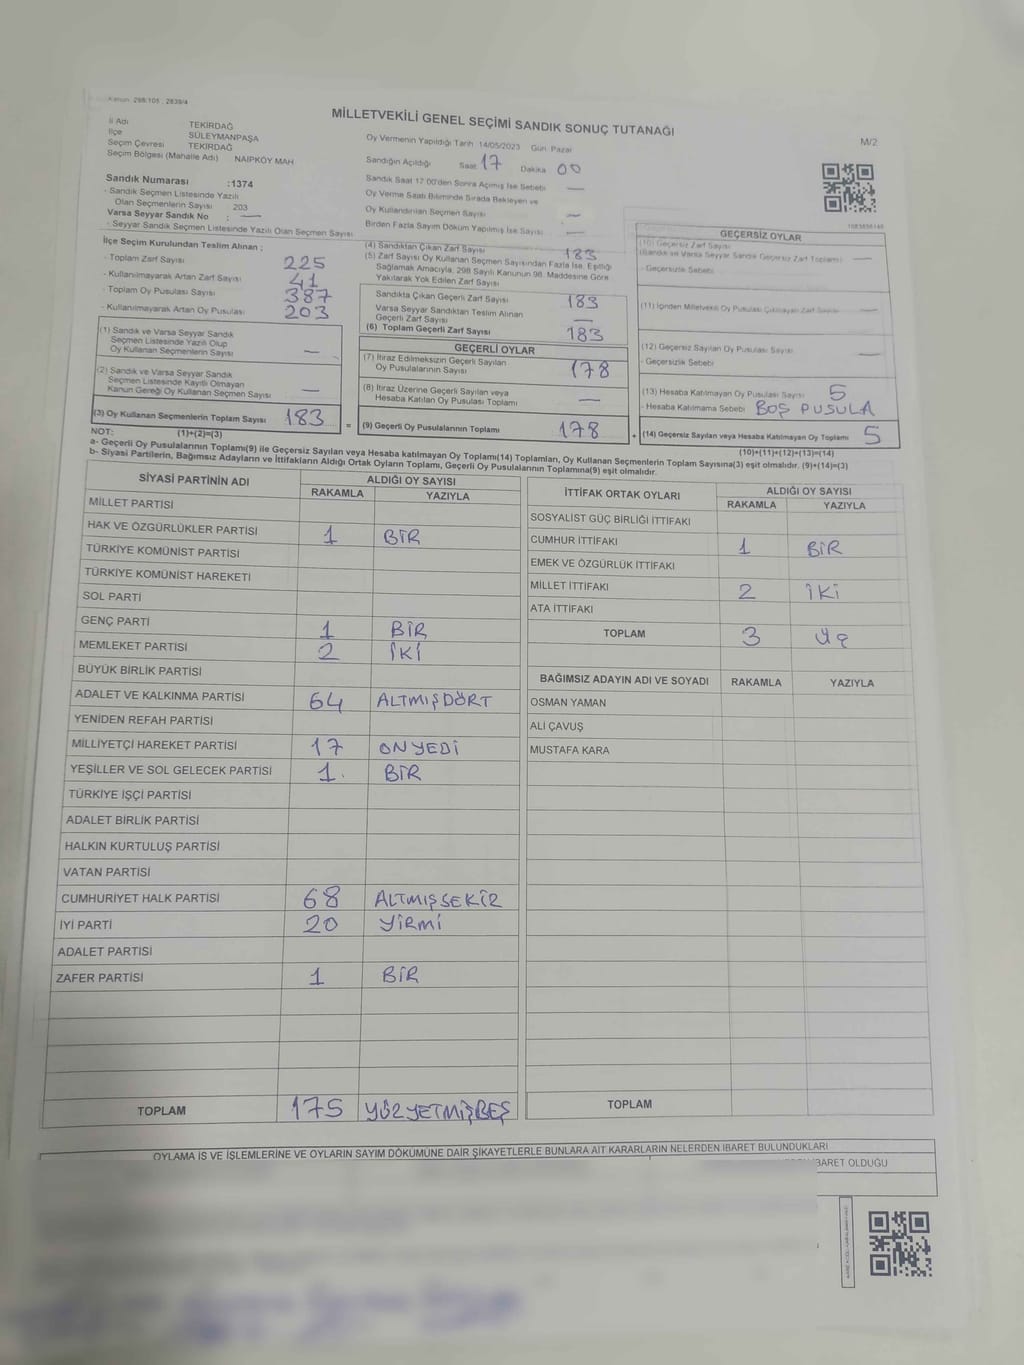 Kanun: 298/105 , 2839/4
MİLLETVEKİLİ GENEL SEÇİMİ SANDIK SONUÇ TUTANAĞI
M/2
İl Adı TEKİRDAĞ
İlçe SÜLEYMANPAŞA
Seçim Çevresi TEKİRDAĞ
Seçim Bölgesi (Mahalle Adı) NAIPKÖY MAH
Oy Vermenin Yapıldığı Tarih 14/05/2023 Gün Pazar
Sandığın Açıldığı Saat 17 Dakika 00
Sandık Saat 17:00'den Sonra Açılmış İse Sebebi —
Oy Verme Saati Bitiminde Sırada Bekleyen ve
Oy Kullandırılan Seçmen Sayısı —
Birden Fazla Sayım Döküm Yapılmış İse Sayısı —
Sandık Numarası :1374
- Sandık Seçmen Listesinde Yazılı
Olan Seçmenlerin Sayısı 203
Varsa Seyyar Sandık No : —
- Seyyar Sandık Seçmen Listesinde Yazılı Olan Seçmen Sayısı
İlçe Seçim Kurulundan Teslim Alınan :
- Toplam Zarf Sayısı 225
- Kullanılmayarak Artan Zarf Sayısı 41
- Toplam Oy Pusulası Sayısı 387
- Kullanılmayarak Artan Oy Pusulası 203
(1) Sandık ve Varsa Seyyar Sandık
Seçmen Listesinde Yazılı Olup
Oy Kullanan Seçmenlerin Sayısı —
(2) Sandık ve Varsa Seyyar Sandık
Seçmen Listesinde Kayıtlı Olmayan
Kanun Gereği Oy Kullanan Seçmen Sayısı —
(3) Oy Kullanan Seçmenlerin Toplam Sayısı 183
(1)+(2)=(3)
(4) Sandıktan Çıkan Zarf Sayısı 183
(5) Zarf Sayısı Oy Kullanan Seçmen Sayısından Fazla İse, Eşitliği
Sağlamak Amacıyla, 298 Sayılı Kanunun 98. Maddesine Göre
Yakılarak Yok Edilen Zarf Sayısı
Sandıkta Çıkan Geçerli Zarf Sayısı 183
Varsa Seyyar Sandıktan Teslim Alınan
Geçerli Zarf Sayısı —
(6) Toplam Geçerli Zarf Sayısı 183
GEÇERLİ OYLAR
(7) İtiraz Edilmeksizin Geçerli Sayılan
Oy Pusulalarının Sayısı 178
(8) İtiraz Üzerine Geçerli Sayılan veya
Hesaba Katılan Oy Pusulası Toplamı —
= (9) Geçerli Oy Pusulalarının Toplamı 178
1083856146
GEÇERSİZ OYLAR
(10) Geçersiz Zarf Sayısı
(Sandık ve Varsa Seyyar Sandık Geçersiz Zarf Toplamı) —
- Geçersizlik Sebebi
(11) İçinden Milletvekili Oy Pusulası Çıkmayan Zarf Sayısı —
(12) Geçersiz Sayılan Oy Pusulası Sayısı —
- Geçersizlik Sebebi
(13) Hesaba Katılmayan Oy Pusula Sayısı 5
- Hesaba Katılmama Sebebi BOŞ PUSULA
+ (14) Geçersiz Sayılan veya Hesaba Katılmayan Oy Toplamı 5
(10)+(11)+(12)+(13)=(14)
NOT:
a- Geçerli Oy Pusulalarının Toplamı(9) ile Geçersiz Sayılan veya Hesaba katılmayan Oy Toplamı(14) Toplamları, Oy Kullanan Seçmenlerin Toplam Sayısına(3) eşit olmalıdır. (9)+(14)=(3)
b- Siyasi Partilerin, Bağımsız Adayların ve İttifakların Aldığı Ortak Oyların Toplamı, Geçerli Oy Pusulalarının Toplamına(9) eşit olmalıdır.
SİYASİ PARTİNİN ADI ALDIĞI OY SAYISI
RAKAMLA YAZIYLA
MİLLET PARTİSİ
HAK VE ÖZGÜRLÜKLER PARTİSİ 1 BİR
TÜRKİYE KOMÜNİST PARTİSİ
TÜRKİYE KOMÜNİST HAREKETİ
SOL PARTİ
GENÇ PARTİ 1 BİR
MEMLEKET PARTİSİ 2 İKİ
BÜYÜK BİRLİK PARTİSİ
ADALET VE KALKINMA PARTİSİ 64 ALTMIŞDÖRT
YENİDEN REFAH PARTİSİ
MİLLİYETÇİ HAREKET PARTİSİ 17 ONYEDİ
YEŞİLLER VE SOL GELECEK PARTİSİ 1 BİR
TÜRKİYE İŞÇİ PARTİSİ
ADALET BİRLİK PARTİSİ
HALKIN KURTULUŞ PARTİSİ
VATAN PARTİSİ
CUMHURİYET HALK PARTİSİ 68 ALTMIŞSEKİZ
İYİ PARTİ 20 YİRMİ
ADALET PARTİSİ
ZAFER PARTİSİ 1 BİR
TOPLAM 175 YÜZYETMİŞBEŞ
İTTİFAK ORTAK OYLARI ALDIĞI OY SAYISI
RAKAMLA YAZIYLA
SOSYALİST GÜÇ BİRLİĞİ İTTİFAKI
CUMHUR İTTİFAKI 1 BİR
EMEK VE ÖZGÜRLÜK İTTİFAKI
MİLLET İTTİFAKI 2 İKİ
ATA İTTİFAKI
TOPLAM 3 ÜÇ
BAĞIMSIZ ADAYIN ADI VE SOYADI RAKAMLA YAZIYLA
OSMAN YAMAN
ALİ ÇAVUŞ
MUSTAFA KARA
TOPLAM
OYLAMA İŞ VE İŞLEMLERİNE VE OYLARIN SAYIM DÖKÜMÜNE DAİR ŞİKAYETLERLE BUNLARA AİT KARARLARIN NELERDEN İBARET BULUNDUKLARI
İBARET OLDUĞU